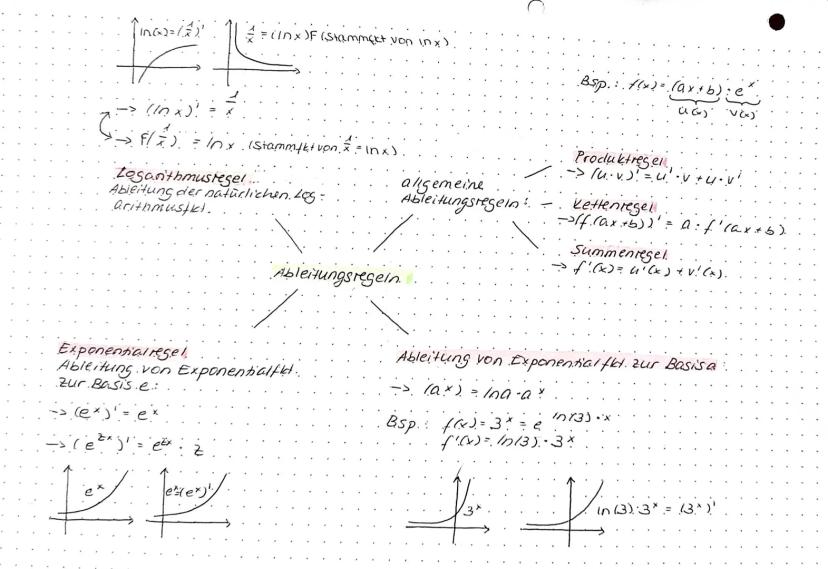 ln(x) = (1/x)'
1/x = (ln x) F (Stammfkt von ln x)
→ (ln x)' = 1/x
→ F(1/x) = ln x (Stammfkt von 1/x = ln x)
Logarithmusregel
Ableitung der natürlichen Log-
arithmusfkt.
allgemeine
Ableitungsregeln:
Bsp.: f(x) = (ax+b) · e^x
u(x) v(x)
Produktregel
→ (u·v)' = u'·v + u·v'
Kettenregel
→ (f(ax+b))' = a·f'(ax+b)
Summenregel
→ f'(x) = u'(x) + v'(x)
Ableitungsregeln
Exponentialregel
Ableitung von Exponentialfkt.
zur Basis e:
→ (e^x)' = e^x
→ (e^zx)' = e^zx · z
e^x
e^x=(e^x)'
Ableitung von Exponentialfkt. zur Basis a
→ (a^x) = ln a · a^x
Bsp.: f(x) = 3^x = e^ln(3)·x
f'(x) = ln(3) · 3^x
3^x
ln(3)·3^x = (3^x)'